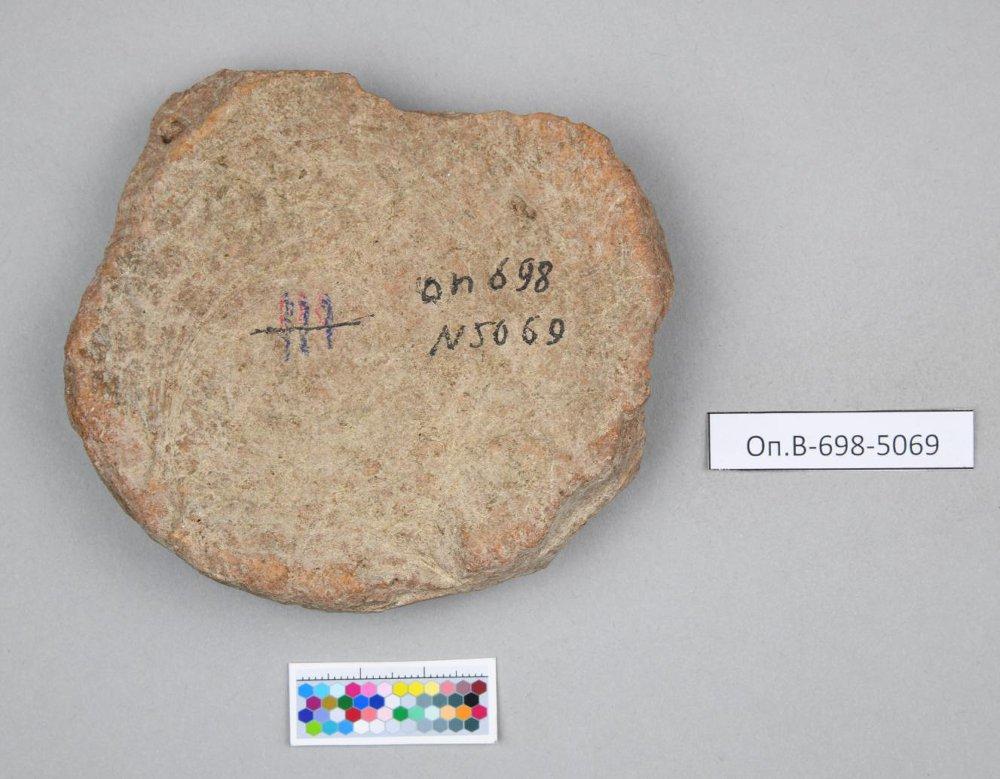 оп 698
N5069
Оп.В-698-5069